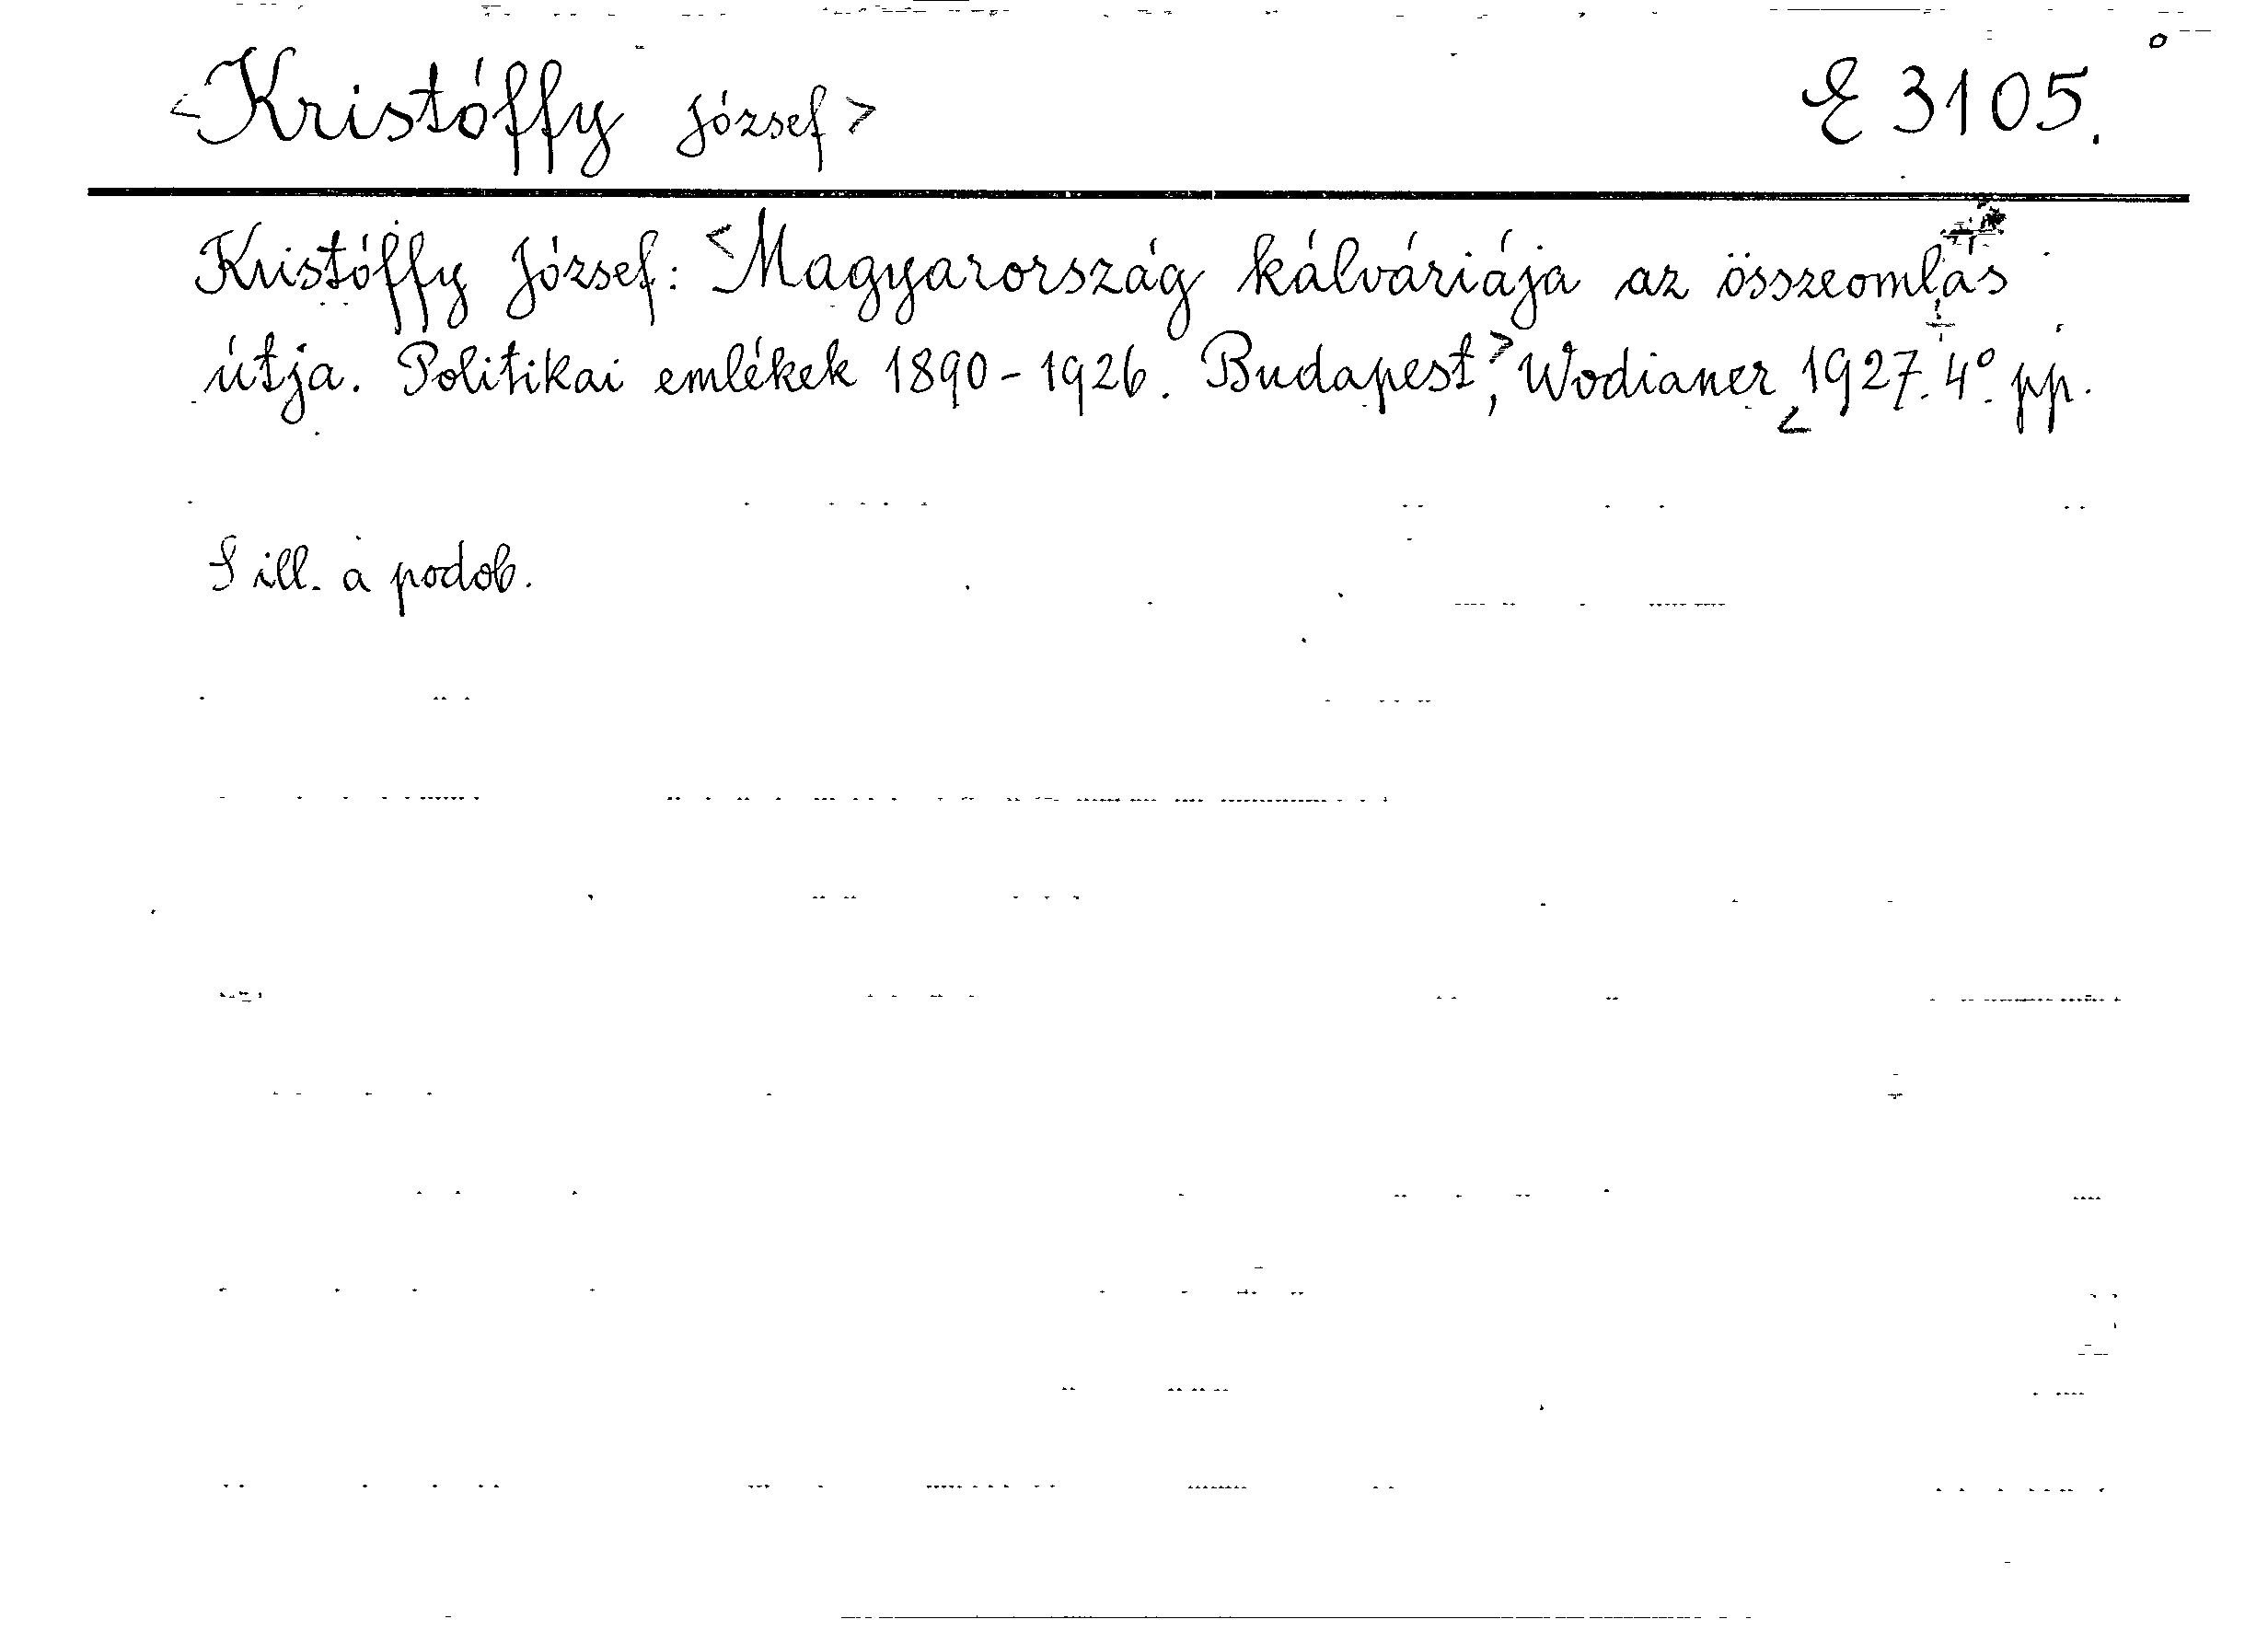 <Kristóffy József> E 3105.
Kristóffy József: <Magyarország kálváriája az összeomlás
útja. Politikai emlékek 1890-1926. Budapest>, Wodianer <1927. 4°. pp.
S ill. a podob.